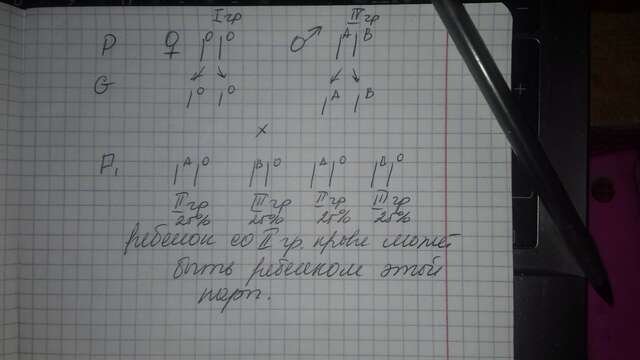 I гр IV гр
P ♀ I⁰ I⁰ ♂ Iᴬ Iᴮ
G I⁰ I⁰ Iᴬ Iᴮ
×
F₁ Iᴬ I⁰ Iᴮ I⁰ Iᴬ I⁰ Iᴮ I⁰
II гр III гр II гр III гр
25% 25% 25% 25%
ребенок со II гр. крови может
быть ребенком этой
пары.